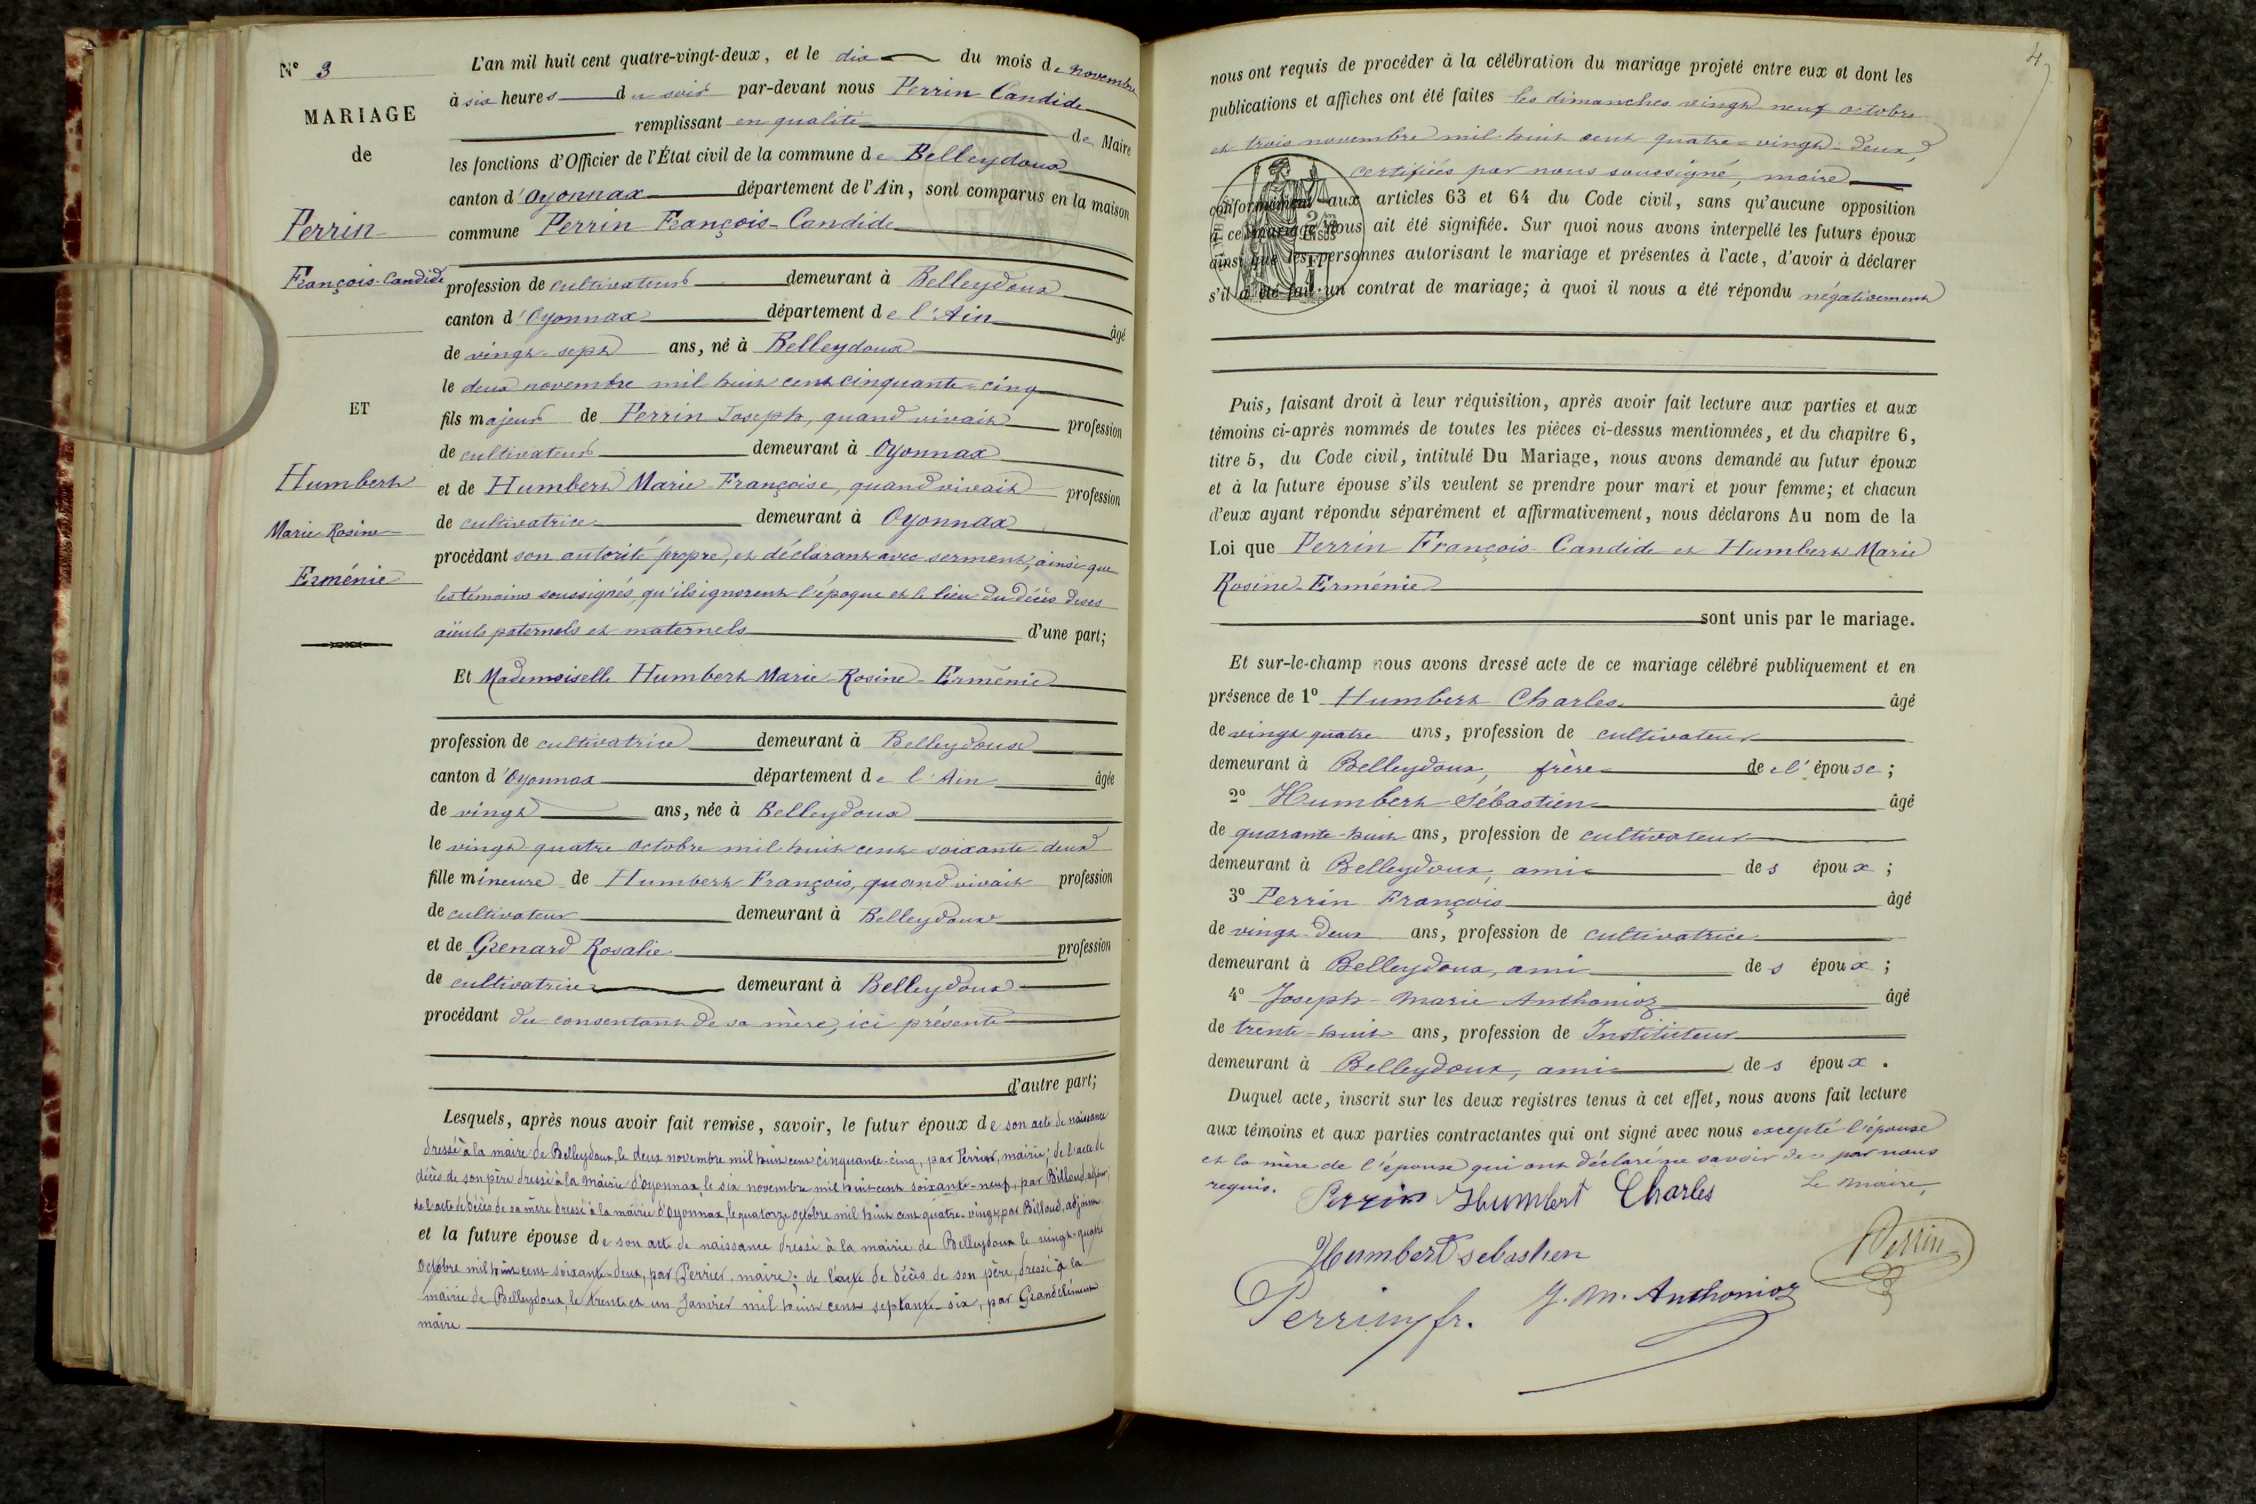 N° 3
MARIAGE
de
Perrin
François-Candide
ET
Humbert
Marie-Rosine
Erménie
L'an mil huit cent quatre-vingt-deux, et le dix du mois de novembre
à six heures du soir par-devant nous Perrin Candide
remplissant en qualité de Maire
les fonctions d'Officier de l'État civil de la commune de Belleydoux
canton d'Oyonnax département de l'Ain, sont comparus en la maison
commune Perrin François-Candide
profession de cultivateur demeurant à Belleydoux
canton d'Oyonnax département de l'Ain âgé
de vingt-sept ans, né à Belleydoux
le deux novembre mil huit cent cinquante-cinq
fils majeur de Perrin Joseph, quand vivait profession
de cultivateur demeurant à Oyonnax
et de Humbert Marie-Françoise, quand vivait profession
de cultivatrice demeurant à Oyonnax
procédant son autorité propre, et déclarant avec serment, ainsi que
les témoins soussignés, qu'ils ignorent l'époque et le lieu du décès de ses
aïeuls paternels et maternels d'une part;
Et Mademoiselle Humbert Marie-Rosine-Erménie
profession de cultivatrice demeurant à Belleydoux
canton d'Oyonnax département de l'Ain âgée
de vingt ans, née à Belleydoux
le vingt-quatre octobre mil huit cent soixante-deux
fille mineure de Humbert François, quand vivait profession
de cultivateur demeurant à Belleydoux
et de Grenard Rosalie profession
de cultivatrice demeurant à Belleydoux
procédant du consentant de sa mère, ici présente
d'autre part;
Lesquels, après nous avoir fait remise, savoir, le futur époux de son acte de naissance
dressé à la maire de Belleydoux, le deux novembre mil huit cent cinquante-cinq, par Perrier, mairie; de l'acte de
décès de son père dressé à la mairie d'Oyonnax, le six novembre mil huit cent soixante-neuf, par Billoud, adjoint;
de l'acte de décès de sa mère dressé à la mairie d'Oyonnax, le quatorze octobre mil huit cent quatre-vingt, par Billoud, adjoint
et la future épouse de son acte de naissance dressé à la mairie de Belleydoux le vingt-quatre
octobre mil huit cent soixante-deux, par Perrier, maire; de l'acte de décès de son père, dressé à la
mairie de Belleydoux, le trente et un Janvier mil huit cent septante-six, par Grandclément
maire
4
nous ont requis de procéder à la célébration du mariage projeté entre eux et dont les
publications et affiches ont été faites les dimanches vingt neuf octobre
et trois novembre mil huit cent quatre-vingt-deux,
certifiées par nous soussigné, maire
conformément aux articles 63 et 64 du Code civil, sans qu'aucune opposition
à ce mariage nous ait été signifiée. Sur quoi nous avons interpellé les futurs époux
ainsi que les personnes autorisant le mariage et présentes à l'acte, d'avoir à déclarer
s'il a été fait un contrat de mariage; à quoi il nous a été répondu négativement
Puis, faisant droit à leur réquisition, après avoir fait lecture aux parties et aux
témoins ci-après nommés de toutes les pièces ci-dessus mentionnées, et du chapitre 6,
titre 5, du Code civil, intitulé Du Mariage, nous avons demandé au futur époux
et à la future épouse s'ils veulent se prendre pour mari et pour femme; et chacun
d'eux ayant répondu séparément et affirmativement, nous déclarons Au nom de la
Loi que Perrin François-Candide et Humbert Marie
Rosine-Erménie
sont unis par le mariage.
Et sur-le-champ nous avons dressé acte de ce mariage célébré publiquement et en
présence de 1° Humbert Charles âgé
de vingt quatre ans, profession de cultivateur
demeurant à Belleydoux, frère de l'épouse;
2° Humbert Sébastien âgé
de quarante-huit ans, profession de cultivateur
demeurant à Belleydoux, ami des époux;
3° Perrin François âgé
de vingt-deux ans, profession de cultivatrice
demeurant à Belleydoux, ami des époux;
4° Joseph-Marie Anthonioz âgé
de trente-huit ans, profession de Instituteur
demeurant à Belleydoux, ami des époux.
Duquel acte, inscrit sur les deux registres tenus à cet effet, nous avons fait lecture
aux témoins et aux parties contractantes qui ont signé avec nous excepté l'épouse
et la mère de l'épouse qui ont déclaré ne savoir de ce par nous
requis. Le Maire,
Perrin Humbert Charles
Perrin
Humbert sebastien
Perrin fr. J. M. Anthonioz